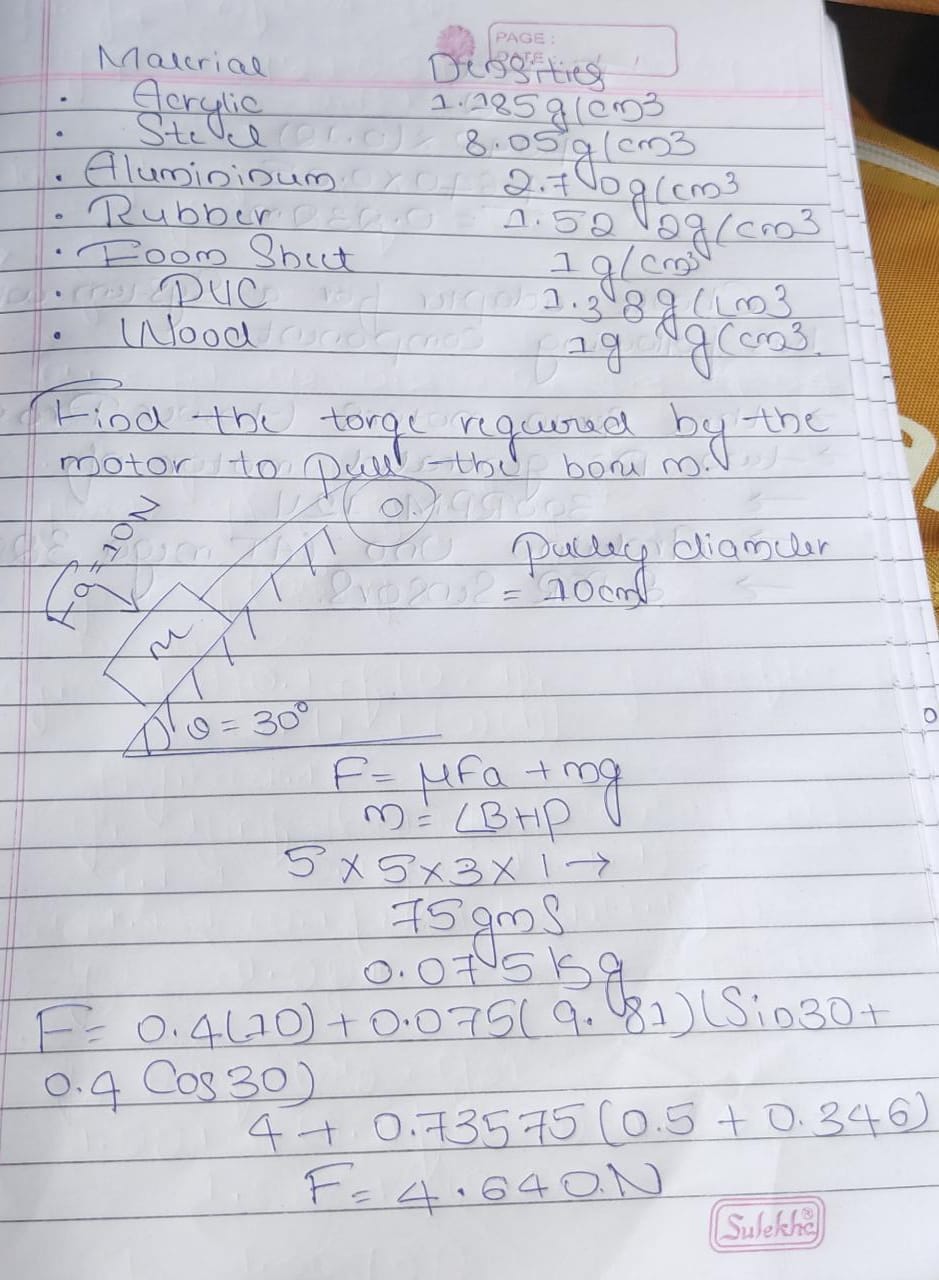 PAGE:
DATE
Material Densities
• Acrylic 1.185g/cm3
• Steel 8.05g/cm3
• Aluminium 2.70g/cm3
• Rubber 1.522g/cm3
• Foom Sheet 1g/cm3
• PVC 1.38g/cm3
• Wood 1g g/cm3
Find the torqe required by the
motor to pull the box m.
Fa=10N
Pulley diameter
= 10cm
M
θ=30°
F= μFa + mg
m= LBHP
5×5×3×1→
75gms
0.075kg
F= 0.4(10)+0.075(9.81)(Sin30+
0.4 Cos30)
4+ 0.73575(0.5+0.346)
F=4.640.N
Sulekha®